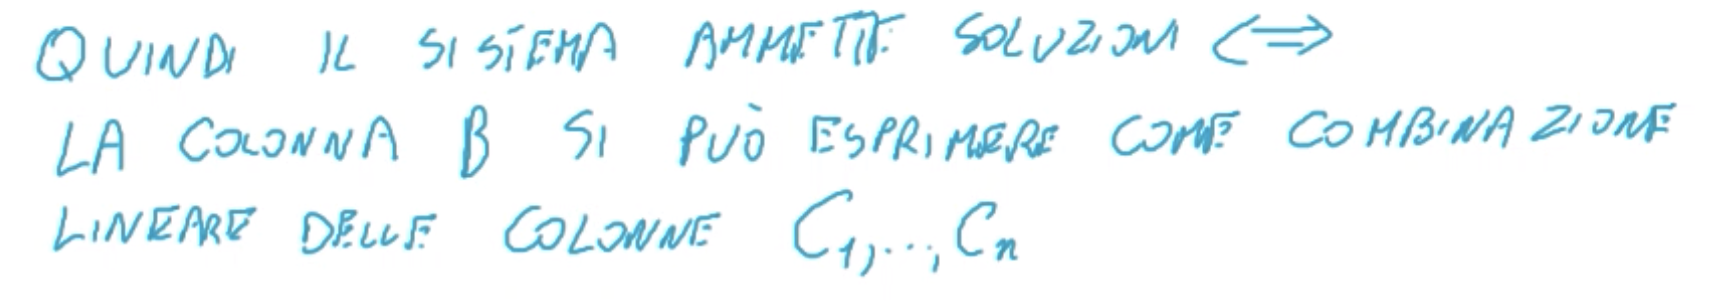 QUINDI IL SISTEMA AMMETTE SOLUZIONI <=>
LA COLONNA B SI PUÒ ESPRIMERE COME COMBINAZIONE
LINEARE DELLE COLONNE C₁,...,Cₙ